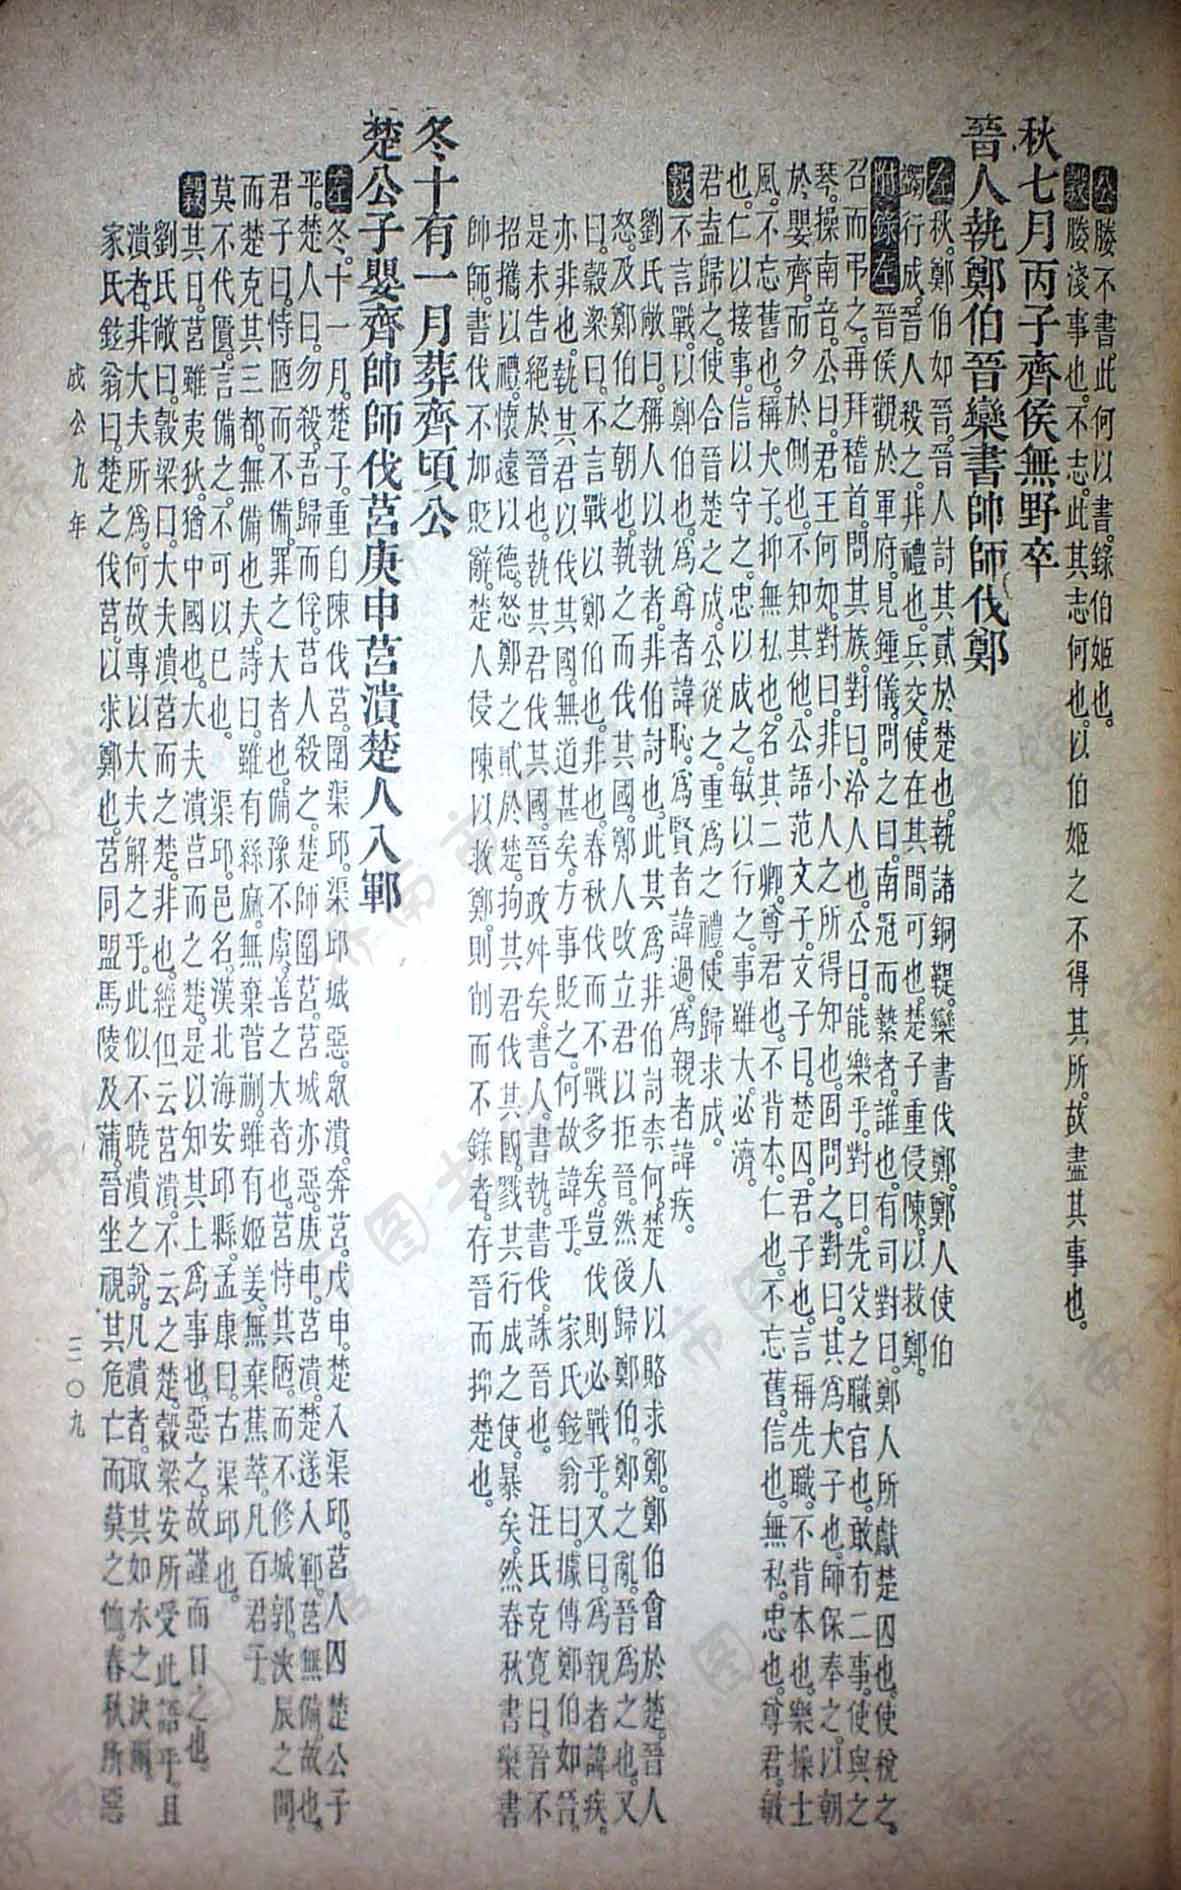 公媵不書。此何以書。錄伯姬也。
穀媵淺事也。不志。此其志何也。以伯姬之不得其所。故盡其事也。
秋七月丙子齊侯無野卒
晉人執鄭伯晉欒書帥師伐鄭
左秋。鄭伯如晉。晉人討其貳於楚也。執諸銅鞮。欒書伐鄭。鄭人使伯
蠲行成。晉人殺之。非禮也。兵交。使在其間可也。楚子重侵陳。以救鄭。
附錄左晉侯觀於軍府。見鍾儀。問之曰。南冠而縶者。誰也。有司對曰。鄭人所獻楚囚也。使稅之。
召而弔之。再拜稽首。問其族。對曰。泠人也。公曰。能樂乎。對曰。先父之職官也。敢有二事。使與之
琴。操南音。公曰。君王何如。對曰。非小人之所得知也。固問之。對曰。其爲太子也。師保奉之。以朝
於嬰齊。而夕於側也。不知其他。公語范文子。文子曰。楚囚。君子也。言稱先職。不背本也。樂操土
風。不忘舊也。稱太子。抑無私也。名其二卿。尊君也。不背本。仁也。不忘舊。信也。無私。忠也。尊君。敏
也。仁以接事。信以守之。忠以成之。敏以行之。事雖大。必濟。
君盍歸之。使合晉楚之成。公從之。重爲之禮。使歸求成。
穀不言戰。以鄭伯也。爲尊者諱恥。爲賢者諱過。爲親者諱疾。
劉氏敞曰。稱人以執者。非伯討也。此其爲非伯討柰何。楚人以賂求鄭。鄭伯會於楚。晉人
怒。及鄭伯之朝也。執之而伐其國。鄭人改立君以拒晉。然後歸鄭伯。鄭之亂。晉爲之也。又
曰。穀梁曰。不言戰。以鄭伯也。非也。春秋伐而不戰多矣。豈伐則必戰乎。又曰。爲親者諱疾。
亦非也。執其君以伐其國。無道甚矣。方事貶之。何故諱乎。 家氏鉉翁曰。據傳鄭伯如晉。
是未告絕於晉也。執其君。伐其國。晉政舛矣。書人。書執。書伐。誅晉也。 汪氏克寬曰。晉不
招攜以禮。懷遠以德。怒鄭之貳於楚。拘其君。伐其國。戮其行成之使。暴矣。然春秋書欒書
帥師。書伐。不加貶辭。楚人侵陳以救鄭。則削而不錄者。存晉而抑楚也。
冬十有一月葬齊頃公
楚公子嬰齊帥師伐莒庚申莒潰楚人入鄆
左冬。十一月。楚子重自陳伐莒。圍渠邱。渠邱城惡。眾潰。奔莒。戊申。楚入渠邱。莒人囚楚公子
平。楚人曰。勿殺。吾歸而俘。莒人殺之。楚師圍莒。莒城亦惡。庚申。莒潰。楚遂入鄆。莒無備故也。
君子曰。恃陋而不備。罪之大者也。備豫不虞。善之大者也。莒恃其陋。而不修城郭。浹辰之間。
而楚克其三都。無備也夫。詩曰。雖有絲麻。無棄菅蒯。雖有姬姜。無棄蕉萃。凡百君子。
莫不代匱。言備之。不可以已也。 渠邱。邑名。漢北海安邱縣。孟康曰。古渠邱也。
穀其曰。莒雖夷狄。猶中國也。大夫潰莒而之楚。是以知其上爲事也。惡之。故謹而日之也。
劉氏敞曰。穀梁曰。大夫潰莒而之楚。非也。經但云莒潰。不云之楚。穀梁安所受此語乎。且
潰者。非大夫所爲。何故專以大夫解之乎。此似不曉潰之說。凡潰者。取其如水之決爾。
家氏鉉翁曰。楚之伐莒。以求鄭也。莒同盟馬陵及蒲。晉坐視其危亡而莫之恤。春秋所惡
成公九年
三〇九